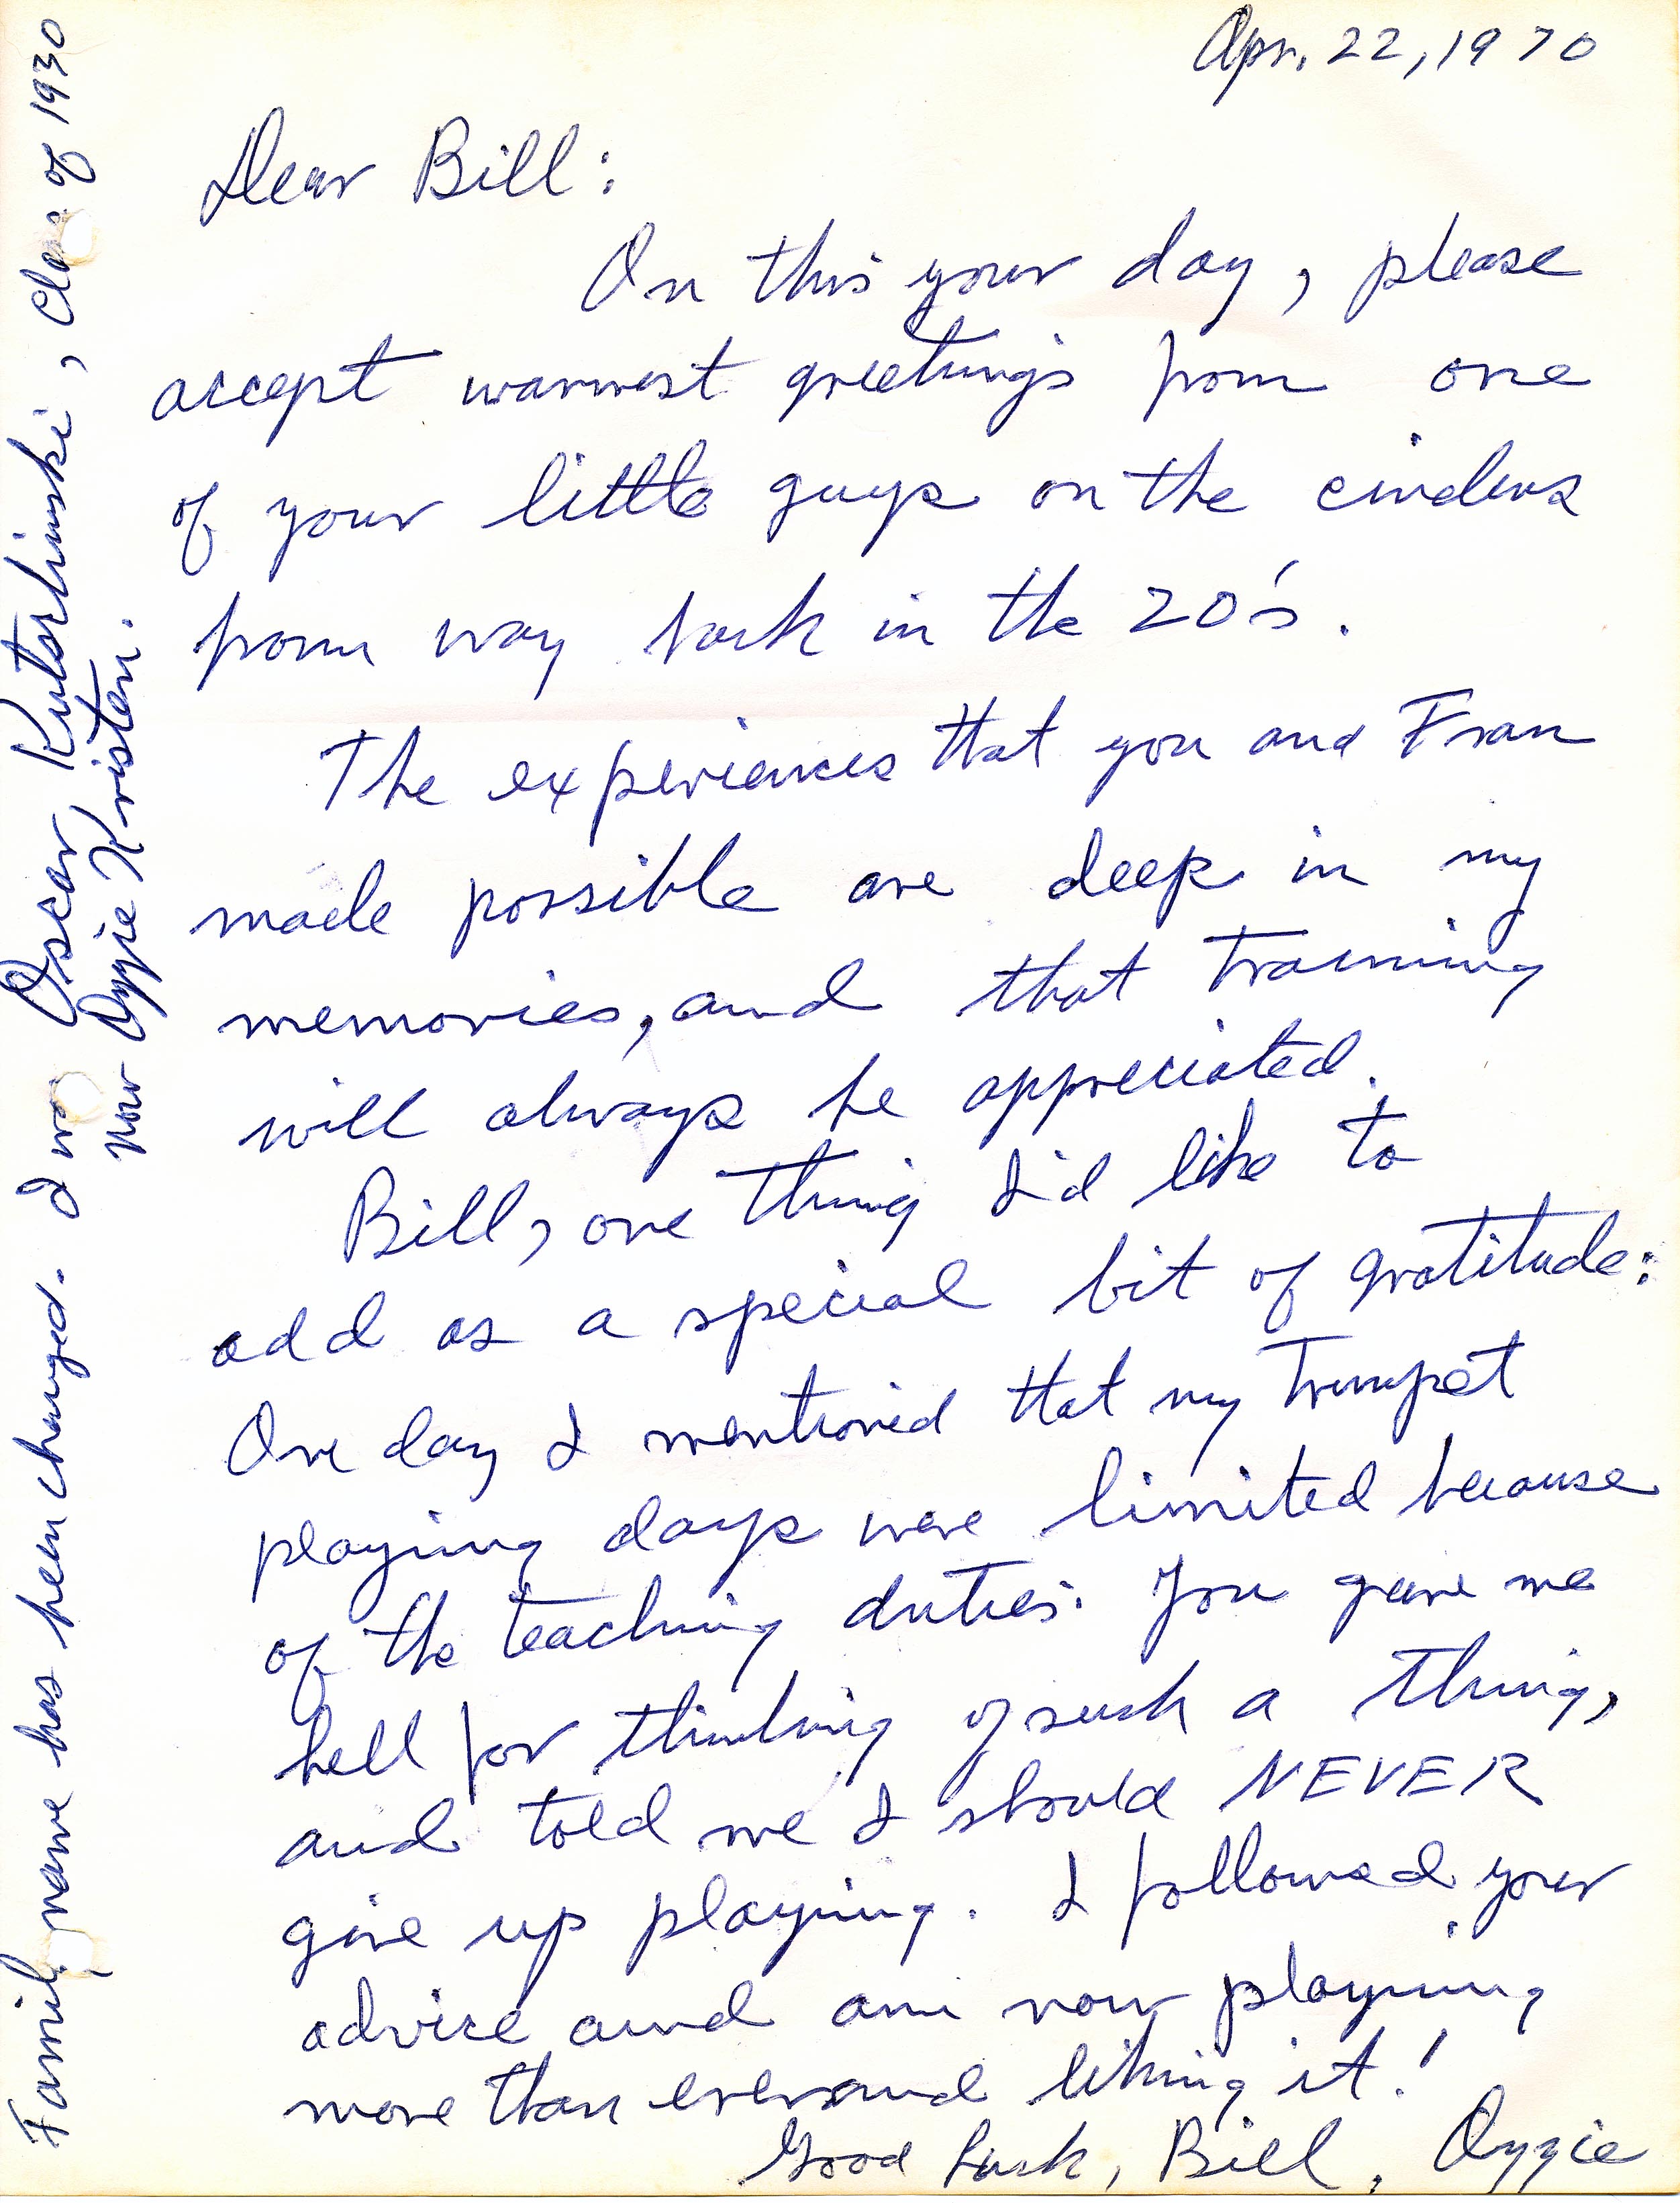 Apr. 22, 1970
Dear Bill:
On this your day, please
accept warmest greetings from one
of your little guys on the cinders
from way back in the 20's.
The experiences that you and Fran
made possible are deep in my
memories, and that training
will always be appreciated.
Bill, one thing I'd like to
add as a special bit of gratitude:
One day I mentioned that my trumpet
playing days were limited because
of the teaching duties. You gave me
hell for thinking of such a thing,
and told me I should NEVER
give up playing. I followed your
advice and am now playing
more than ever and liking it!
Good Luck, Bill, Ozzie
Family name has been changed. I was Oscar Kutschinski, Class of 1930
now Ozzie Kristen.